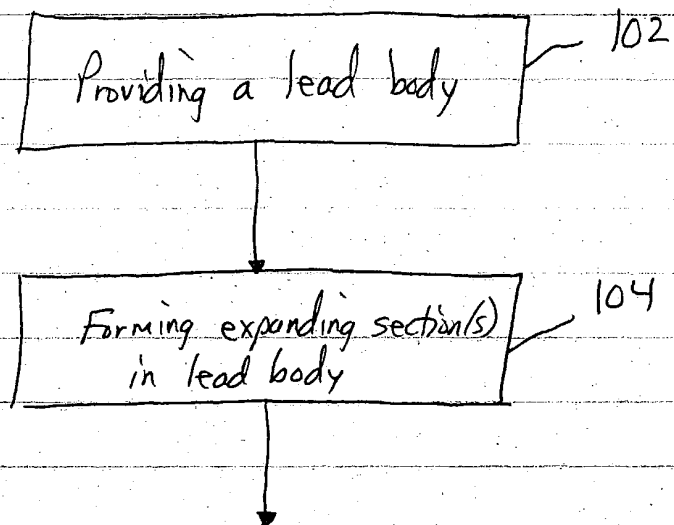 Providing a lead body
102
Forming expanding section(s)
in lead body
104